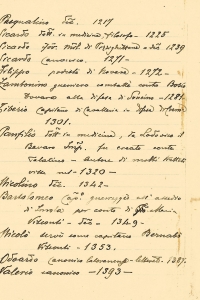 Pasqualino Doc. 1217
Ricardo Dott. in medicina e filosofia - 1225
Ricardo di Pizzighettone - 1239
Ricardo canonico - 1271 -
Filippo podestà di Novara - 1272 -
Lantonino guerriero combatté contro Botto
Dovara alla difesa di Soncino - 1281.
Giberto capitano di cavalleria in difesa di
1301.
Panfilo Dott. in medicina, da Lodovico il
Bavaro Imp. fu creato conte
Palatino - autore di molti
visse nel - 1320 -
Nicolino Doc. 1342 -
Bartolomeo Cap. guerreggiò all'assedio
di per conto di
Visconti - 1349 -
Nicolò servì come capitano Bernabò
Visconti - 1353.
Odoardo canonico 1387.
Valerio canonico - 1393 -